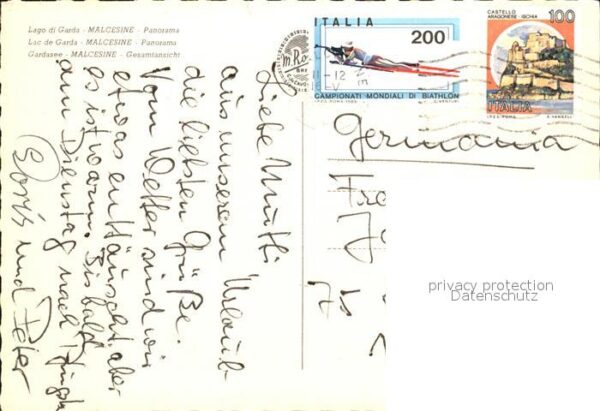 Lago di Garda - MALCESINE - Panorama
Lac de Garda - MALCESINE - Panorama
Gardasee - MALCESINE - Gesamtansicht
ITALIA
200
CAMPIONATI MONDIALI DI BIATHLON
I.P.Z.S. ROMA
CASTELLO
ARAGONESE - ISCHIA
100
ITALIA
I.P.Z.S. ROMA
Liebe Mutti
aus unserem Urlaub
die liebsten Grüße.
Vom Wetter sind wir
etwas enttäuscht aber
es ist warm. Bis bald
am Dienstag nach
Doris und Peter
Germania
privacy protection
Datenschutz